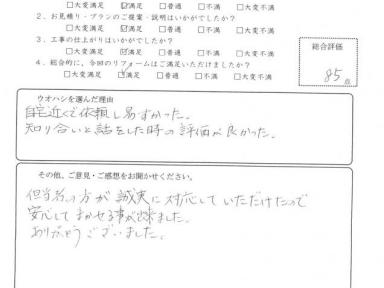 □大変満足 ☑満足 □普通 □不満 □大変不満
2、お見積り・プランのご提案・説明はいかがでしたか?
□大変満足 ☑満足 □普通 □不満 □大変不満
3、工事の仕上がりはいかがでしたか?
□大変満足 ☑満足 □普通 □不満 □大変不満
4、総合的に、今回のリフォームはご満足いただけましたか?
□大変満足 ☑満足 □普通 □不満 □大変不満
総合評価
85点
ウオハシを選んだ理由
自宅近くで依頼し易すかった。
知り合いと話をした時の評価が良かった。
その他、ご意見・ご感想をお聞かせください。
担当者の方が誠実に対応していただけたので
安心してまかせる事が出来ました。
ありがとうございました。